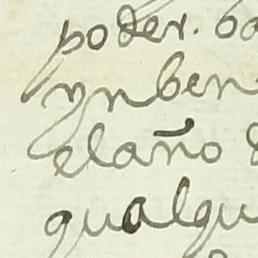 poder. ba
ynben
el año
qualqu